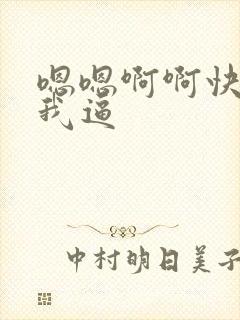 嗯嗯啊啊快
我逼
中村明日美子